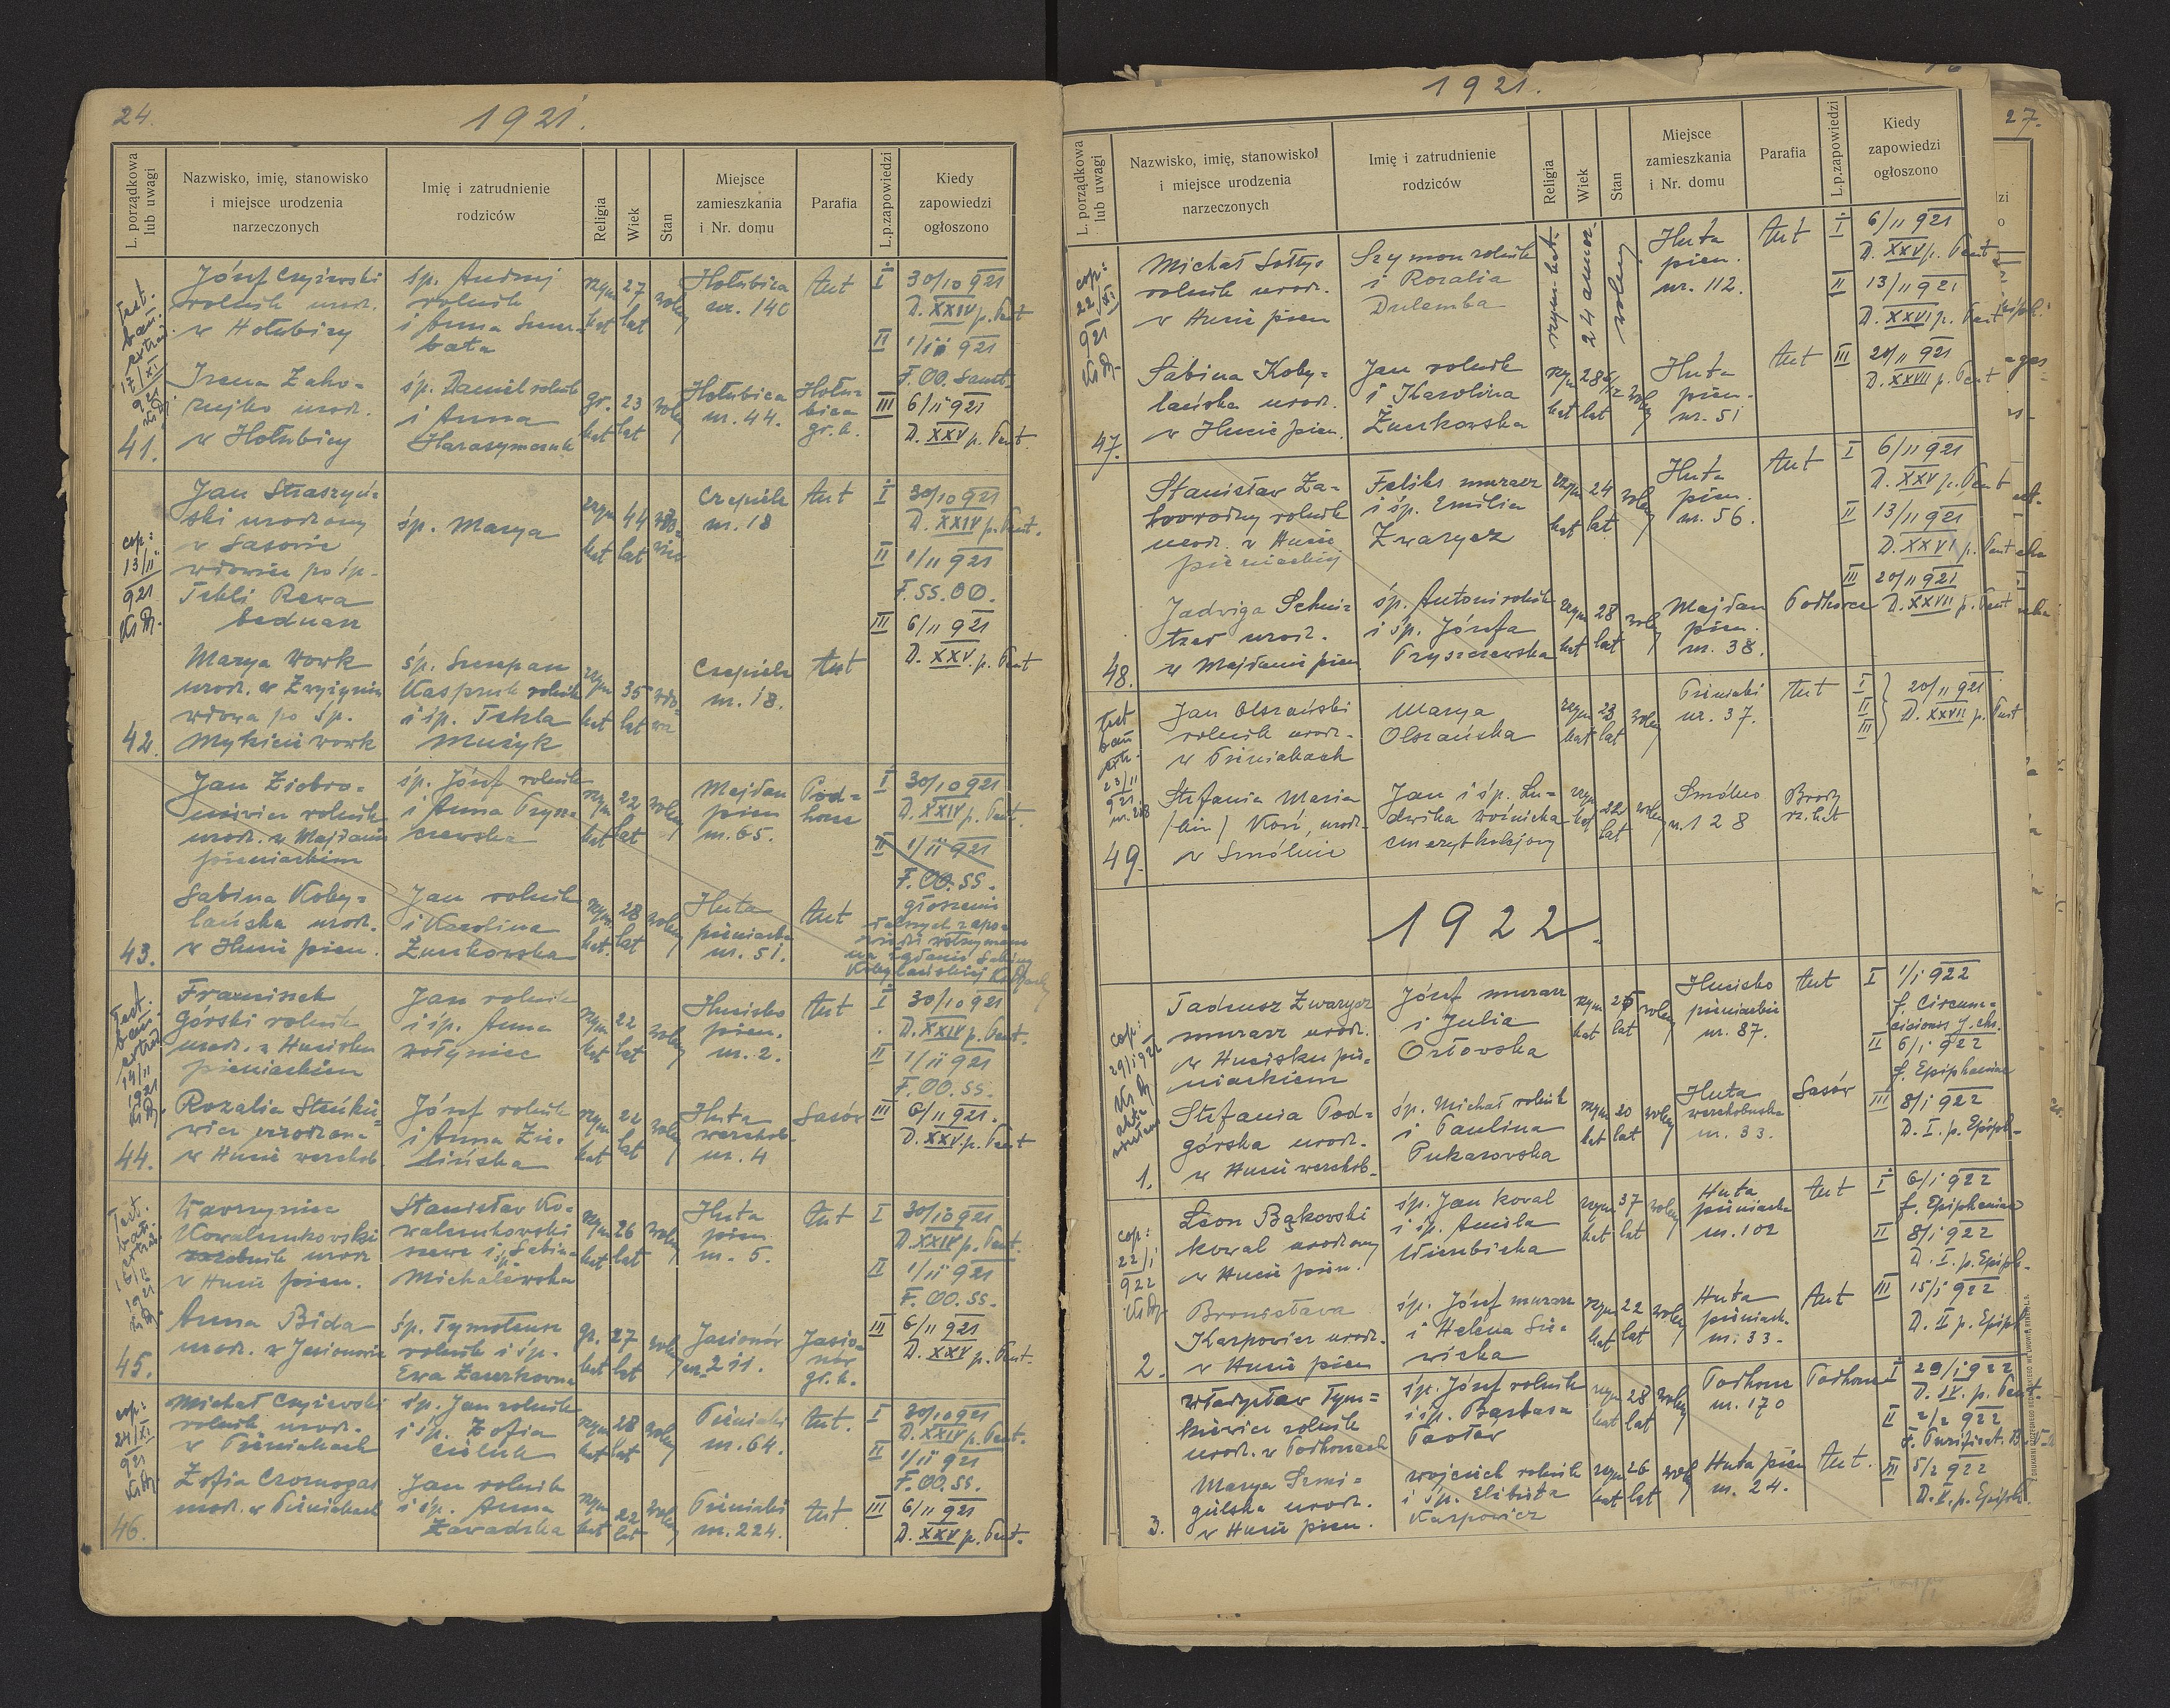 24.
1921.
L. porządkowa lub uwagi
Nazwisko, imię, stanowisko i miejsce urodzenia narzeczonych
Imię i zatrudnienie rodziców
Religia
Wiek
Stan
Miejsce zamieszkania i Nr. domu
Parafia
L.p.zapowiedzi
Kiedy zapowiedzi ogłoszono
Test.
ban.
extrad.
17/XI
921
41.
Józef Czyżewski
rolnik urodz.
w Hołubicy
śp. Andrzej
rolnik
i Anna
rzym
kat
27
lat
wolny
Hołubica
nr. 140
Aut
I 30/10 921
D. XXIV p. Pent
II 1/11 921
F. OO. Sanct.
III 6/11 921
D. XXV p. Pent.
Irena
urodz.
w Hołubicy
śp. Daniel rolnik
i Anna
Harasymczuk
gr.
kat
23
lat
wolny
Hołubica
nr. 44.
Hołu-
bica
gr. k.
cop:
13/11
921
42.
Jan Straszyń-
ski urodzony
w Sasowie
wdowiec po śp.
Tekli Rewa
bednarz
śp. Marya
rzym
kat
44
lat
wdo-
wiec
Czepiele
nr. 18
Aut
I 30/10 921
D. XXIV p. Pent.
II 1/11 921
F. SS. OO.
III 6/11 921
D. XXV. p. Pent
Marya Work
urodz. w Zwyżyniu
wdowa po śp.
Work
śp. Szczepan
Kasprzuk rolnik
i śp. Tekla
Mużyk
rzym
kat
35
lat
wdo-
wa
Czepiele
nr. 18.
Aut
43.
Jan Ziobro-
niewicz rolnik
urodz. w Majdanie
pieniackim
śp. Józef rolnik
i Anna Prysz-
czewska
rzym
kat
22
lat
wolny
Majdan
pien
nr. 65.
Pod-
horce
I 30/10 921
D. XXIV p. Pent.
II 1/11 921
F. OO. SS.
głoszenie
dalszych zapo-
wiedzi wstrzymano
na żądanie Sabiny
Kobylańskiej
Sabina Koby-
lańska urodz.
w Hucie pien.
Jan rolnik
i Karolina
Żurkowska
rzym
kat.
28
lat
wolny
Huta
pieniacka
nr. 51.
Aut
Test.
ban.
extrad.
14/11
1921
44.
Franciszek
Górski rolnik
urodz. w Hucisku
pieniackiem
Jan rolnik
i śp. Anna
Wołyniec
rzym
kat
22
lat
wolny
Hucisko
pien.
nr. 2.
Aut
I 30/10 921
D. XXIV p. Pent.
II 1/11 921
F. OO. SS.
III 6/11 921.
D. XXV. p. Pent
Rozalia
urodzona
w Hucie werchob.
Józef rolnik
i Anna Zie-
lińska
rzym
kat
22
lat
wolny
Huta
werchob.
nr. 4
Sasów
Test.
ban.
extrad.
16/11
1921
45.
Wawrzyniec
Kowalczukowski
urodz
w Hucie pien.
Stanisław Ko-
walczukowski
szewc i śp. Sabina
Michalewska
rzym
kat
26
lat
wolny
Huta
pien
nr. 5.
Aut
I 30/10 921
D. XXIV p. Pent.
II 1/11 921
F. OO. SS.
III 6/11 921
D. XXV p. Pent.
Anna Bida
urodz. w Jasionowie
śp. Tymoteusz
rolnik i śp.
Ewa
gr.
kat
27
lat
wolny
Jasionów
nr. 211.
Jasio-
nów
gr. k.
cop:
24/XI
921
46.
Michał Czyżewski
rolnik urodz.
w Pieniakach
śp. Jan rolnik
i śp. Zofia
rzym
kat
28
lat
wolny
Pieniaki
nr. 64.
Aut.
I 30/10 921
D. XXIV p. Pent.
II 1/11 921
F. OO. SS.
III 6/11 921
D. XXV p. Pent.
Zofia Czornogas
urodz. w Pieniakach
Jan rolnik
i śp. Anna
Zawadzka
rzym
kat
22
lat
wolny
Pieniaki
nr. 224.
Aut
1921.
27.
L. porządkowa lub uwagi
Nazwisko, imię, stanowisko i miejsce urodzenia narzeczonych
Imię i zatrudnienie rodziców
Religia
Wiek
Stan
Miejsce zamieszkania i Nr. domu
Parafia
L.p.zapowiedzi
Kiedy zapowiedzi ogłoszono
cop:
22/XI
921
47.
Michał Sołtys
rolnik urodz.
w Hucie pien
Szymon rolnik
i Rozalia
Dulemba
rzym-kat.
24 annor.
wolny
Huta
pien.
nr. 112.
Aut
I 6/11 921
D. XXV p. Pent
II 13/11 921
D. XXVI p. Pent
III 20/11 921
D. XXVII p. Pent
Sabina Koby-
lańska urodz.
w Hucie pien.
Jan rolnik
i Karolina
Żurkowska
rzym
kat
28
lat
wolny
Huta
pien.
nr. 51
Aut
48.
Stanisław Za-
horodny rolnik
urodz. w Hucie
pieniackiej
Feliks murarz
i śp. Emilia
Zwarycz
rzym
kat
24
lat.
wolny
Huta
pien.
nr. 56.
Aut
I 6/11 921
D. XXV p. Pent
II 13/11 921
D. XXVI p. Pent
III 20/11 921
D. XXVII p. Pent
Jadwiga
urodz.
w Majdanie pien
śp. Antoni rolnik
i śp. Józefa
Pryszczewska
rzym
kat
28
lat
wolny
Majdan
pien.
nr. 38.
Podhorce
Test
ban
extr.
23/11
921
49.
Jan Olszański
rolnik urodz.
w Pieniakach
Marya
Olszańska
rzym
kat
23
lat
wolny
Pieniaki
nr. 37.
Aut
I
II
III
20/11 921
D. XXVII p. Pent
Stefania Maria
Koń, urodz.
w Smólnie
Jan i śp. Lu-
dwika Woźnicka
emeryt kolejowy
rzym
kat
22
lat
wolny
Smólno
n. 128
Brody
rz. kat
1922.
cop:
29/1 922
1.
Tadeusz Zwarycz
murarz urodz.
w Hucisku pie-
niackiem
Józef murarz
i Julia
Orłowska
rzym
kat
lat
wolny
Hucisko
pieniackie
nr. 87.
Aut
I 1/1 922
f. Circum-
cisionis J. chr.
II 6/1 922
f. Epiphaniae
III 8/1 922
D. I. p. Epiph.
Stefania Pod-
górska urodz.
w Hucie werchob.
śp. Michał rolnik
i Paulina
Pukasowska
rzym
kat
20
lat
wolny
Huta
werchobuska
nr. 33.
Sasów
cop:
22/1
922
2.
Leon Bąkowski
kowal urodzony
w Hucie pien.
śp. Jan kowal
i śp. Aniela
Wierzbicka
rzym
kat
37
lat
wolny
Huta
pieniacka
nr. 102
Aut
I 6/1 922
f. Epiphaniae
II 8/1 922
D. I. p. Epiph.
III 15/1 922
D. II p. Epiph.
Bronisława
Karpowicz urodz.
w Hucie pien
śp. Józef murarz
i Helena Sie-
wicka
rzym
kat
22
lat
wolny
Huta
pieniack.
nr. 33.
Aut
3.
Władysław Tym-
kiewicz rolnik
urodz. w Podhorcach
śp. Józef rolnik
i śp. Barbara
Pasław
rzym
kat
28
lat
wolny
Podhorce
nr. 170
Podhorce
I 29/1 922
D. IV. p.
II 2/2 922
F. Purificat. B.
III 5/2 922
D. V. p. Epiph.
Marya
urodz.
w Hucie pien.
Wojciech rolnik
i śp. Elżbieta
Karpowicz
rzym
kat
26
lat
wolny
Huta pien
nr. 24.
Aut.